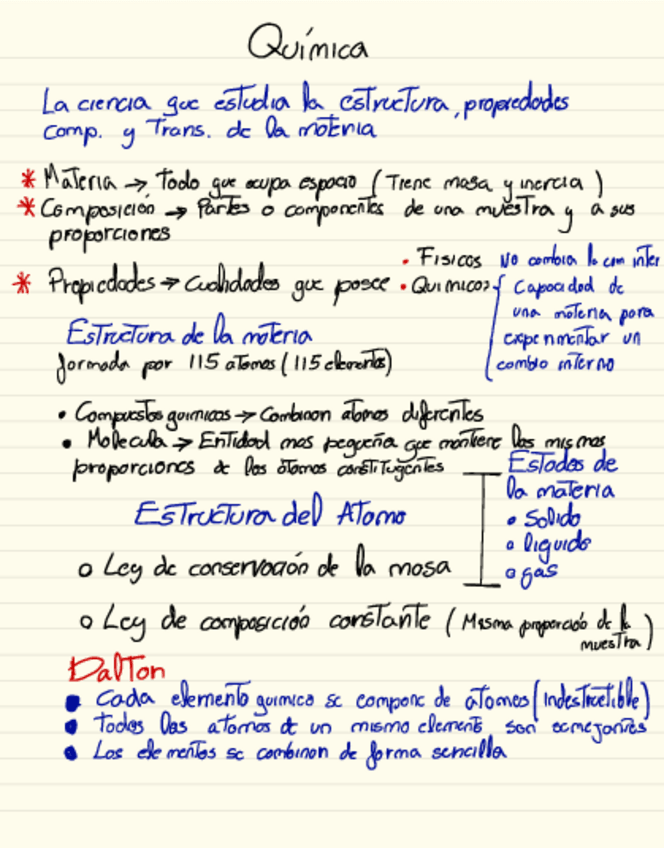 Química
La ciencia que estudia la estructura, propiedades
Comp. y Trans. de la materia
* Materia → Todo que ocupa espacio (Tiene masa y inercia)
* Composición → Partes o componentes de una muestra y a sus
proporciones
* Propiedades → Cualidades que posee
• Fisicos No cambia la com inter
• Quimicos { Capacidad de
una materia para
experimentar un
cambio interno
Estructura de la materia
formada por 115 atomos (115 elementos)
• Compuestos quimicos → Combinan atomos diferentes
• Molecula → Entidad mas pequeña que mantiene las mismas
proporciones de los atomos constituyentes
Estados de
la materia
• Solido
• liquido
• gas
Estructura del Atomo
o Ley de conservación de la masa
o Ley de composición constante (Misma proporción de la
muestra)
Dalton
• Cada elemento quimico se compone de atomos (Indestructible)
• todos los atomos de un mismo elemento son semejantes
• Los elementos se combinan de forma sencilla